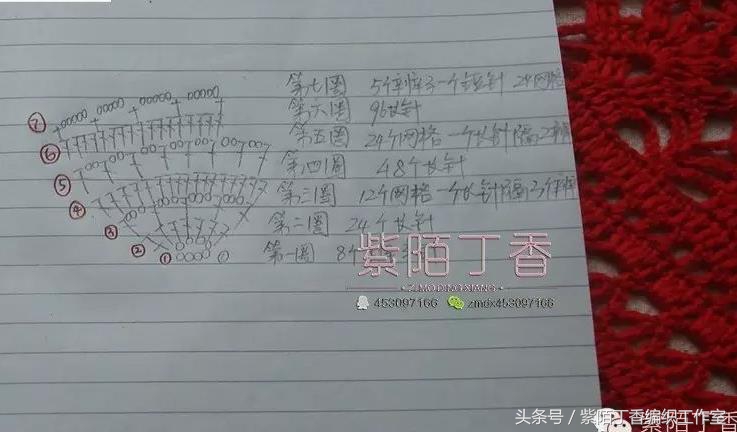 第七圈 5个辫子一个短针 24网格
第六圈 96长针
第五圈 24个网格 一个长针隔2辫
第四圈 48个长针
第三圈 12个网格一个长针隔3个辫
第二圈 24个长针
第一圈 8个
⑦
⑥
⑤
④
③
②
①
紫陌丁香
ZIMODINGXIANG
453097166 zmdx453097166
紫陌丁香
头条号／紫陌丁香编织工作室